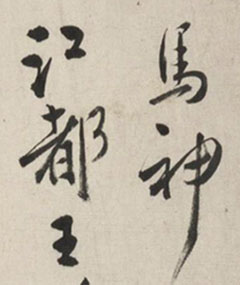 馬神
江都王